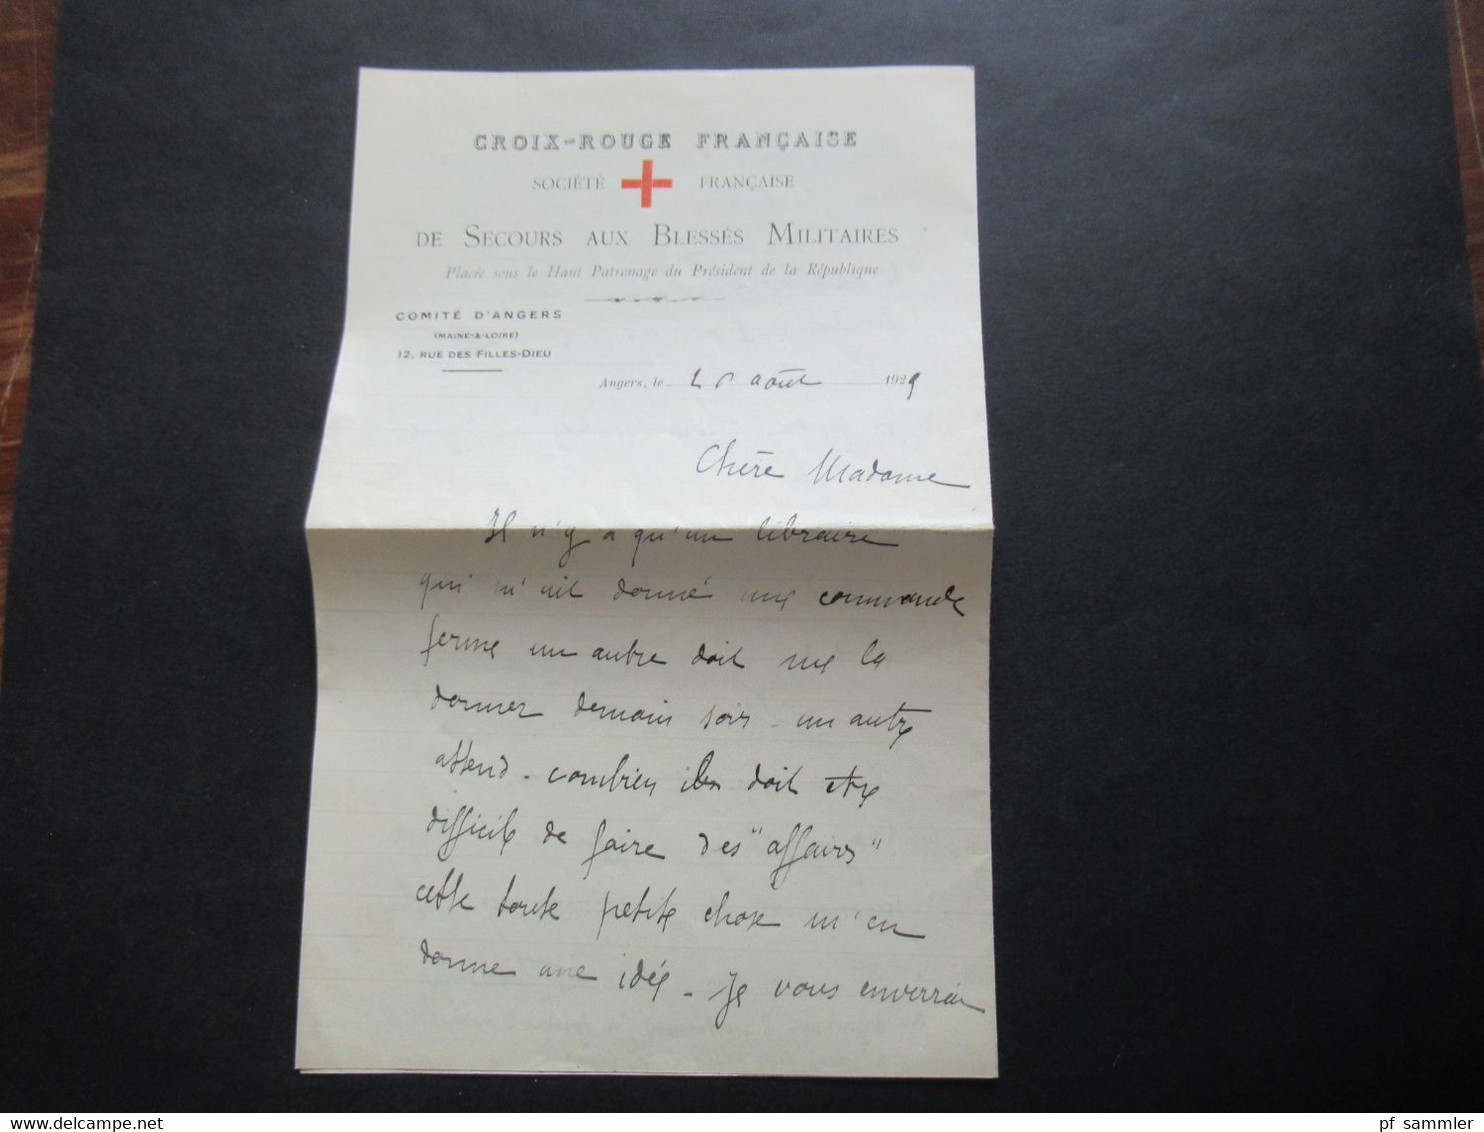 CROIX-ROUGE FRANÇAISE
SOCIÉTÉ FRANÇAISE
DE SECOURS AUX BLESSÉS MILITAIRES
Placée sous le Haut Patronage du Président de la République
COMITÉ D'ANGERS
(MAINE-&-LOIRE)
12, RUE DES FILLES-DIEU
Angers, le août 1929
Chère Madame
Il n'y a qu'un libraire
qui m'ait donné une commande
ferme un autre doit me la
donner demain soir - un autre
attend - combien doit être
difficile de faire des "affaires"
cette toute petite chose m'en
donne une idée - Je vous enverrai
www.delcampe.net
pf_sammler